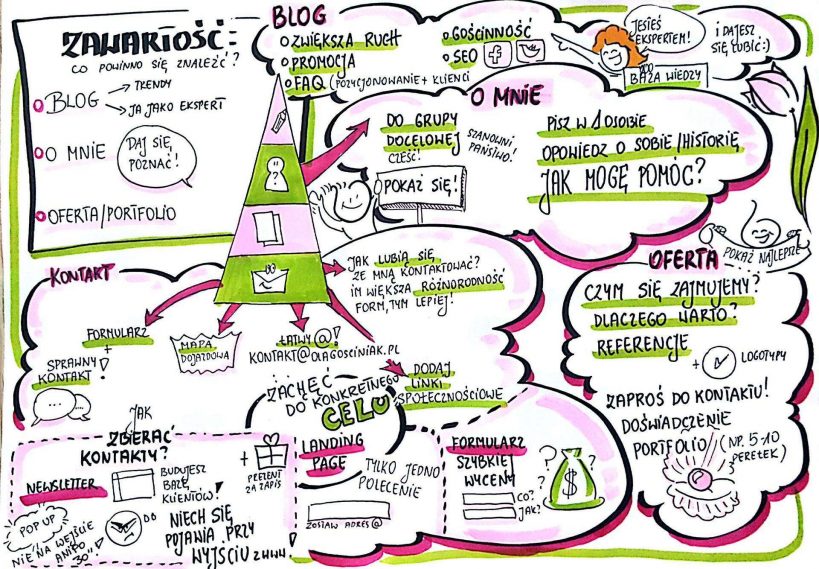 ZAWARTOŚĆ:
CO POWINNO SIĘ ZNALEŹĆ?
BLOG
TRENDY
JA JAKO EKSPERT
O MNIE
DAJ SIĘ
POZNAĆ!
OFERTA/PORTFOLIO
BLOG
ZWIĘKSZA RUCH
PROMOCJA
FAQ (POZYCJONOWANIE + KLIENCI
GOŚCINNOŚĆ
SEO
f
JESTEŚ
EKSPERTEM!
I DAJESZ
SIĘ LUBIĆ:)
BAZA WIEDZY
O MNIE
DO GRUPY
DOCELOWEJ
CZEŚĆ!
SZANOWNI
PAŃSTWO!
POKAŻ SIĘ!
PISZ W 1 OSOBIE
OPOWIEDZ O SOBIE/HISTORIĘ
JAK MOGĘ POMÓC?
KONTAKT
FORMULARZ
+
SPRAWNY
KONTAKT!
MAPA
DOJAZDOWA
ŁATWY @!
KONTAKT@OLAGOSCINIAK.PL
JAK LUBIĄ SIĘ
ZE MNĄ KONTAKTOWAĆ?
IM WIĘKSZA RÓŻNORODNOŚĆ
FORM, TYM LEPIEJ!
DODAJ
LINKI
SPOŁECZNOŚCIOWE
OFERTA
POKAŻ NAJLEPSZE
CZYM SIĘ ZAJMUJEMY?
DLACZEGO WARTO?
REFERENCJE
+ LOGOTYPY
ZAPROŚ DO KONTAKTU!
DOŚWIADCZENIE
PORTFOLIO/(NP. 5-10
PEREŁEK)
JAK
ZBIERAĆ
KONTAKTY?
NEWSLETTER
BUDUJESZ
BAZĘ
KLIENTÓW!
+
PREZENT
ZA ZAPIS
POP UP
NIE NA WEJŚCIE
ANI PO
30"!
NIECH SIĘ
POJAWIA PRZY
WYJŚCIU Z WWW!
ZACHĘĆ
DO KONKRETNEGO
CELU
LANDING
PAGE
TYLKO JEDNO
POLECENIE
ZOSTAW ADRES @
FORMULARZ
SZYBKIEJ
WYCENY
CO?
JAK?
? ? ?
$